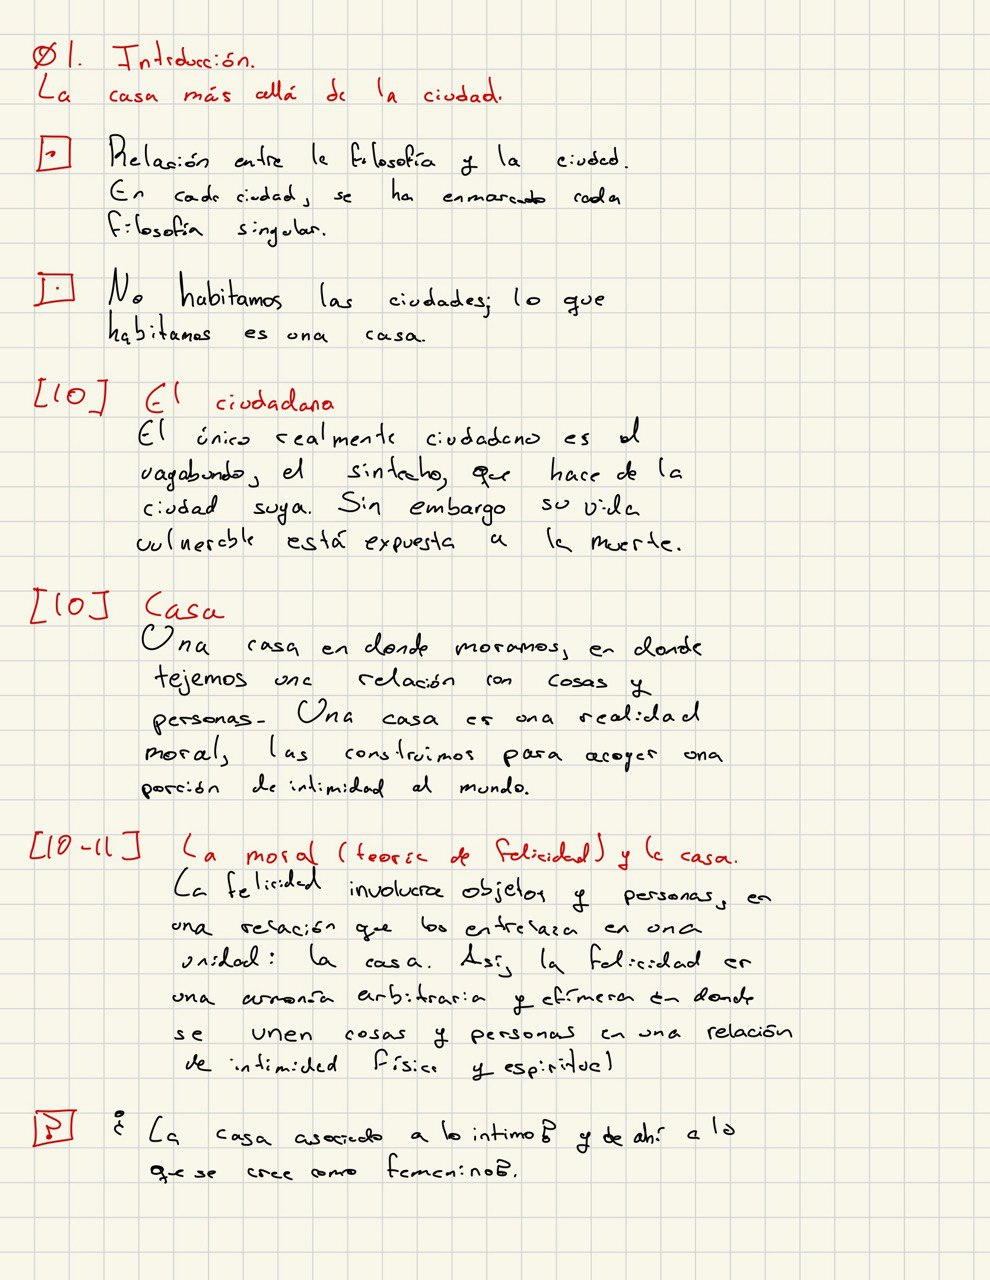 Ø1. Introducción.
La casa más allá de la ciudad.
Relación entre la filosofía y la ciudad.
En cada ciudad, se ha enmarcado cada
filosofía singular.
No habitamos las ciudades; lo que
habitamos es una casa.
[10] El ciudadano
El único realmente ciudadano es el
vagabundo, el sintecho, que hace de la
ciudad suya. Sin embargo su vida
vulnerable está expuesta a la muerte.
[10] Casa
Una casa en donde moramos, en donde
tejemos una relación con cosas y
personas. Una casa es una realidad
moral, las construimos para acoger una
porción de intimidad al mundo.
[10-11] La moral (teoría de felicidad) y la casa.
La felicidad involucra objetos y personas, en
una relación que los entrelaza en una
unidad: la casa. Así, la felicidad es
una armonía arbitraria y efímera en donde
se unen cosas y personas en una relación
de intimidad física y espiritual
? ¿La casa asociado a lo intimo? y de ahí a lo
que se cree como femenino?.